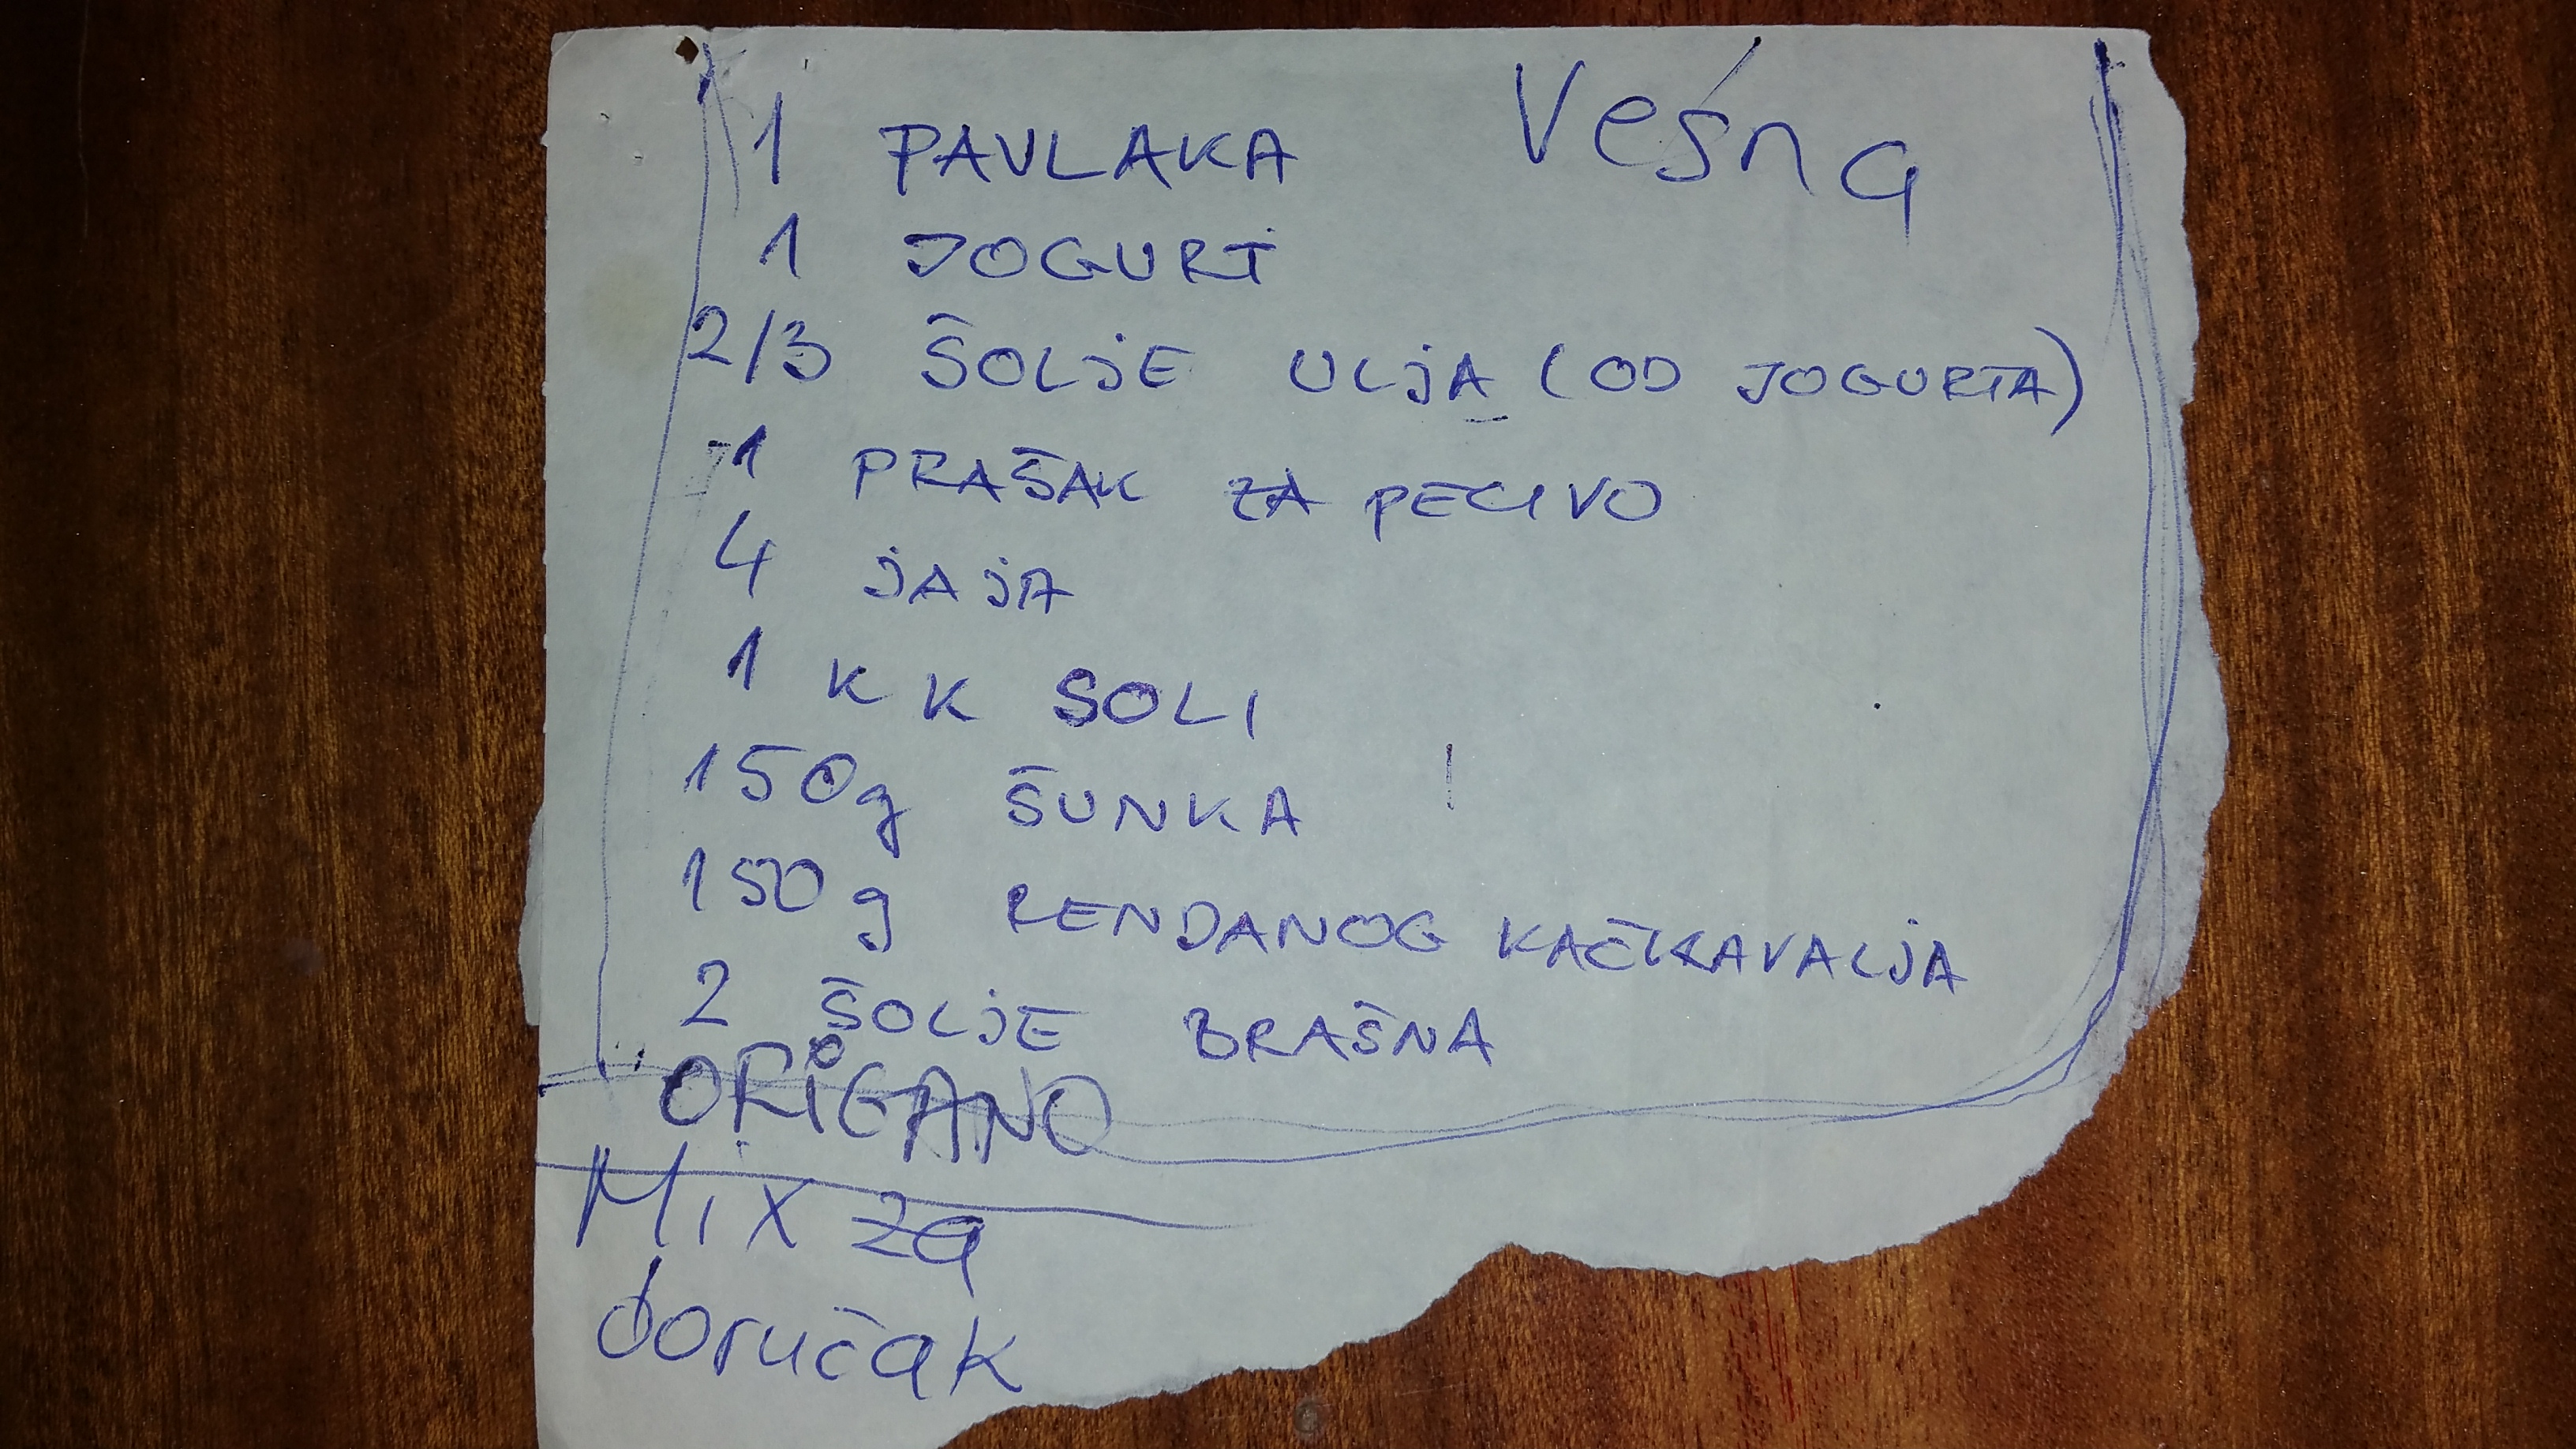 1 PAVLAKA Vesna
1 JOGURT
2/3 ŠOLJE ULJA (OD JOGURTA)
1 PRAŠAK ZA PECIVO
4 JAJA
1 KK SOLI
150g ŠUNKA
150g RENDANOG KAČKAVALJA
2 ŠOLJE BRAŠNA
ORIGANO
Mix za
doručak